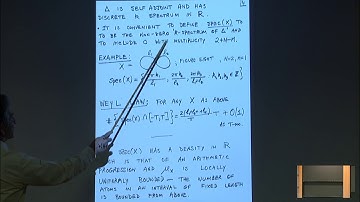 Δ IS SELF ADJOINT AND HAS
DISCRETE SPECTRUM IN R.
• IT IS CONVENIENT TO DEFINE SPEC(X) TO
TO BE THE NON-ZERO SPECTRUM OF
TO INCLUDE 0 WITH MULTIPLICITY 2+N-M.
EXAMPLE:
X =
FIGURE 8, N=2,
SPEC(X) =
WEYL LAW: FOR ANY X AS ABOVE
# {SPEC(X) ∩ [-T,T]} = T + O(1)
AS T→∞.
SPEC(X) HAS A DENSITY IN R
WHICH IS THAT OF AN ARITHMETIC
PROGRESSION AND μ_X IS LOCALLY
UNIFORMLY BOUNDED — THE NUMBER OF
ATOMS IN AN INTERVAL OF FIXED LENGTH
IS BOUNDED FROM ABOVE.